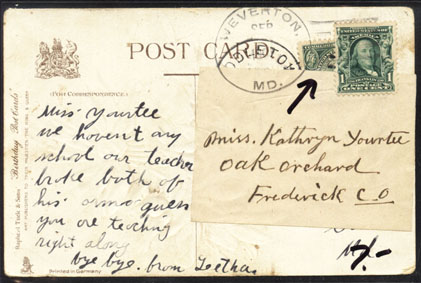 WEVERTON,
FEB
MD.
POST CARD
1
ONE CENT
FOR CORRESPONDENCE
Miss Yourtee
we havent any
school our teacher
broke both of
his arms guess
you are teaching
right along
bye bye. from Leetha.
Miss. Kathryn Yourtee
Oak Orchard
Frederick Co
Md.
Raphael Tuck & Sons' "Birthday" Post Cards
Printed in Germany